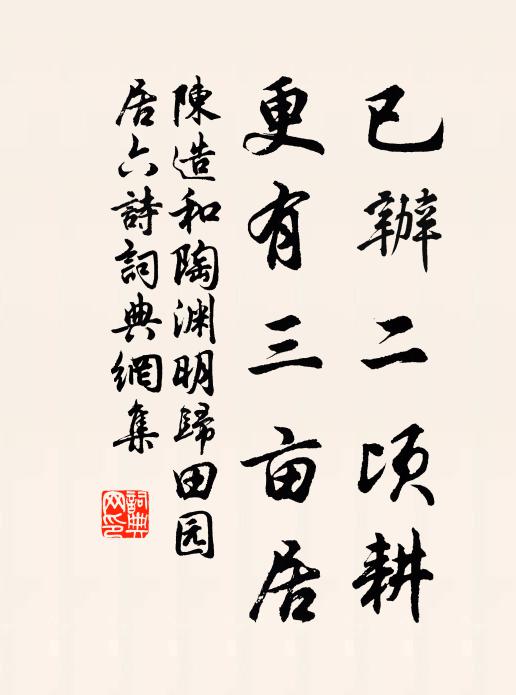 已辦二頃耕
更有三亩居
陳造和陶渊明歸田园
居六詩詞典網集
詞典网印